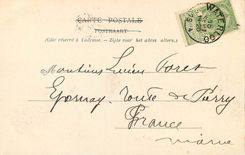 CARTE POSTALE
POSTKAART
(Côté réservé à l'adresse. - Zijde voor het adres alleen.)
Monsieur Lucien Foret
Epernay, Route de Pierry
France
Marne